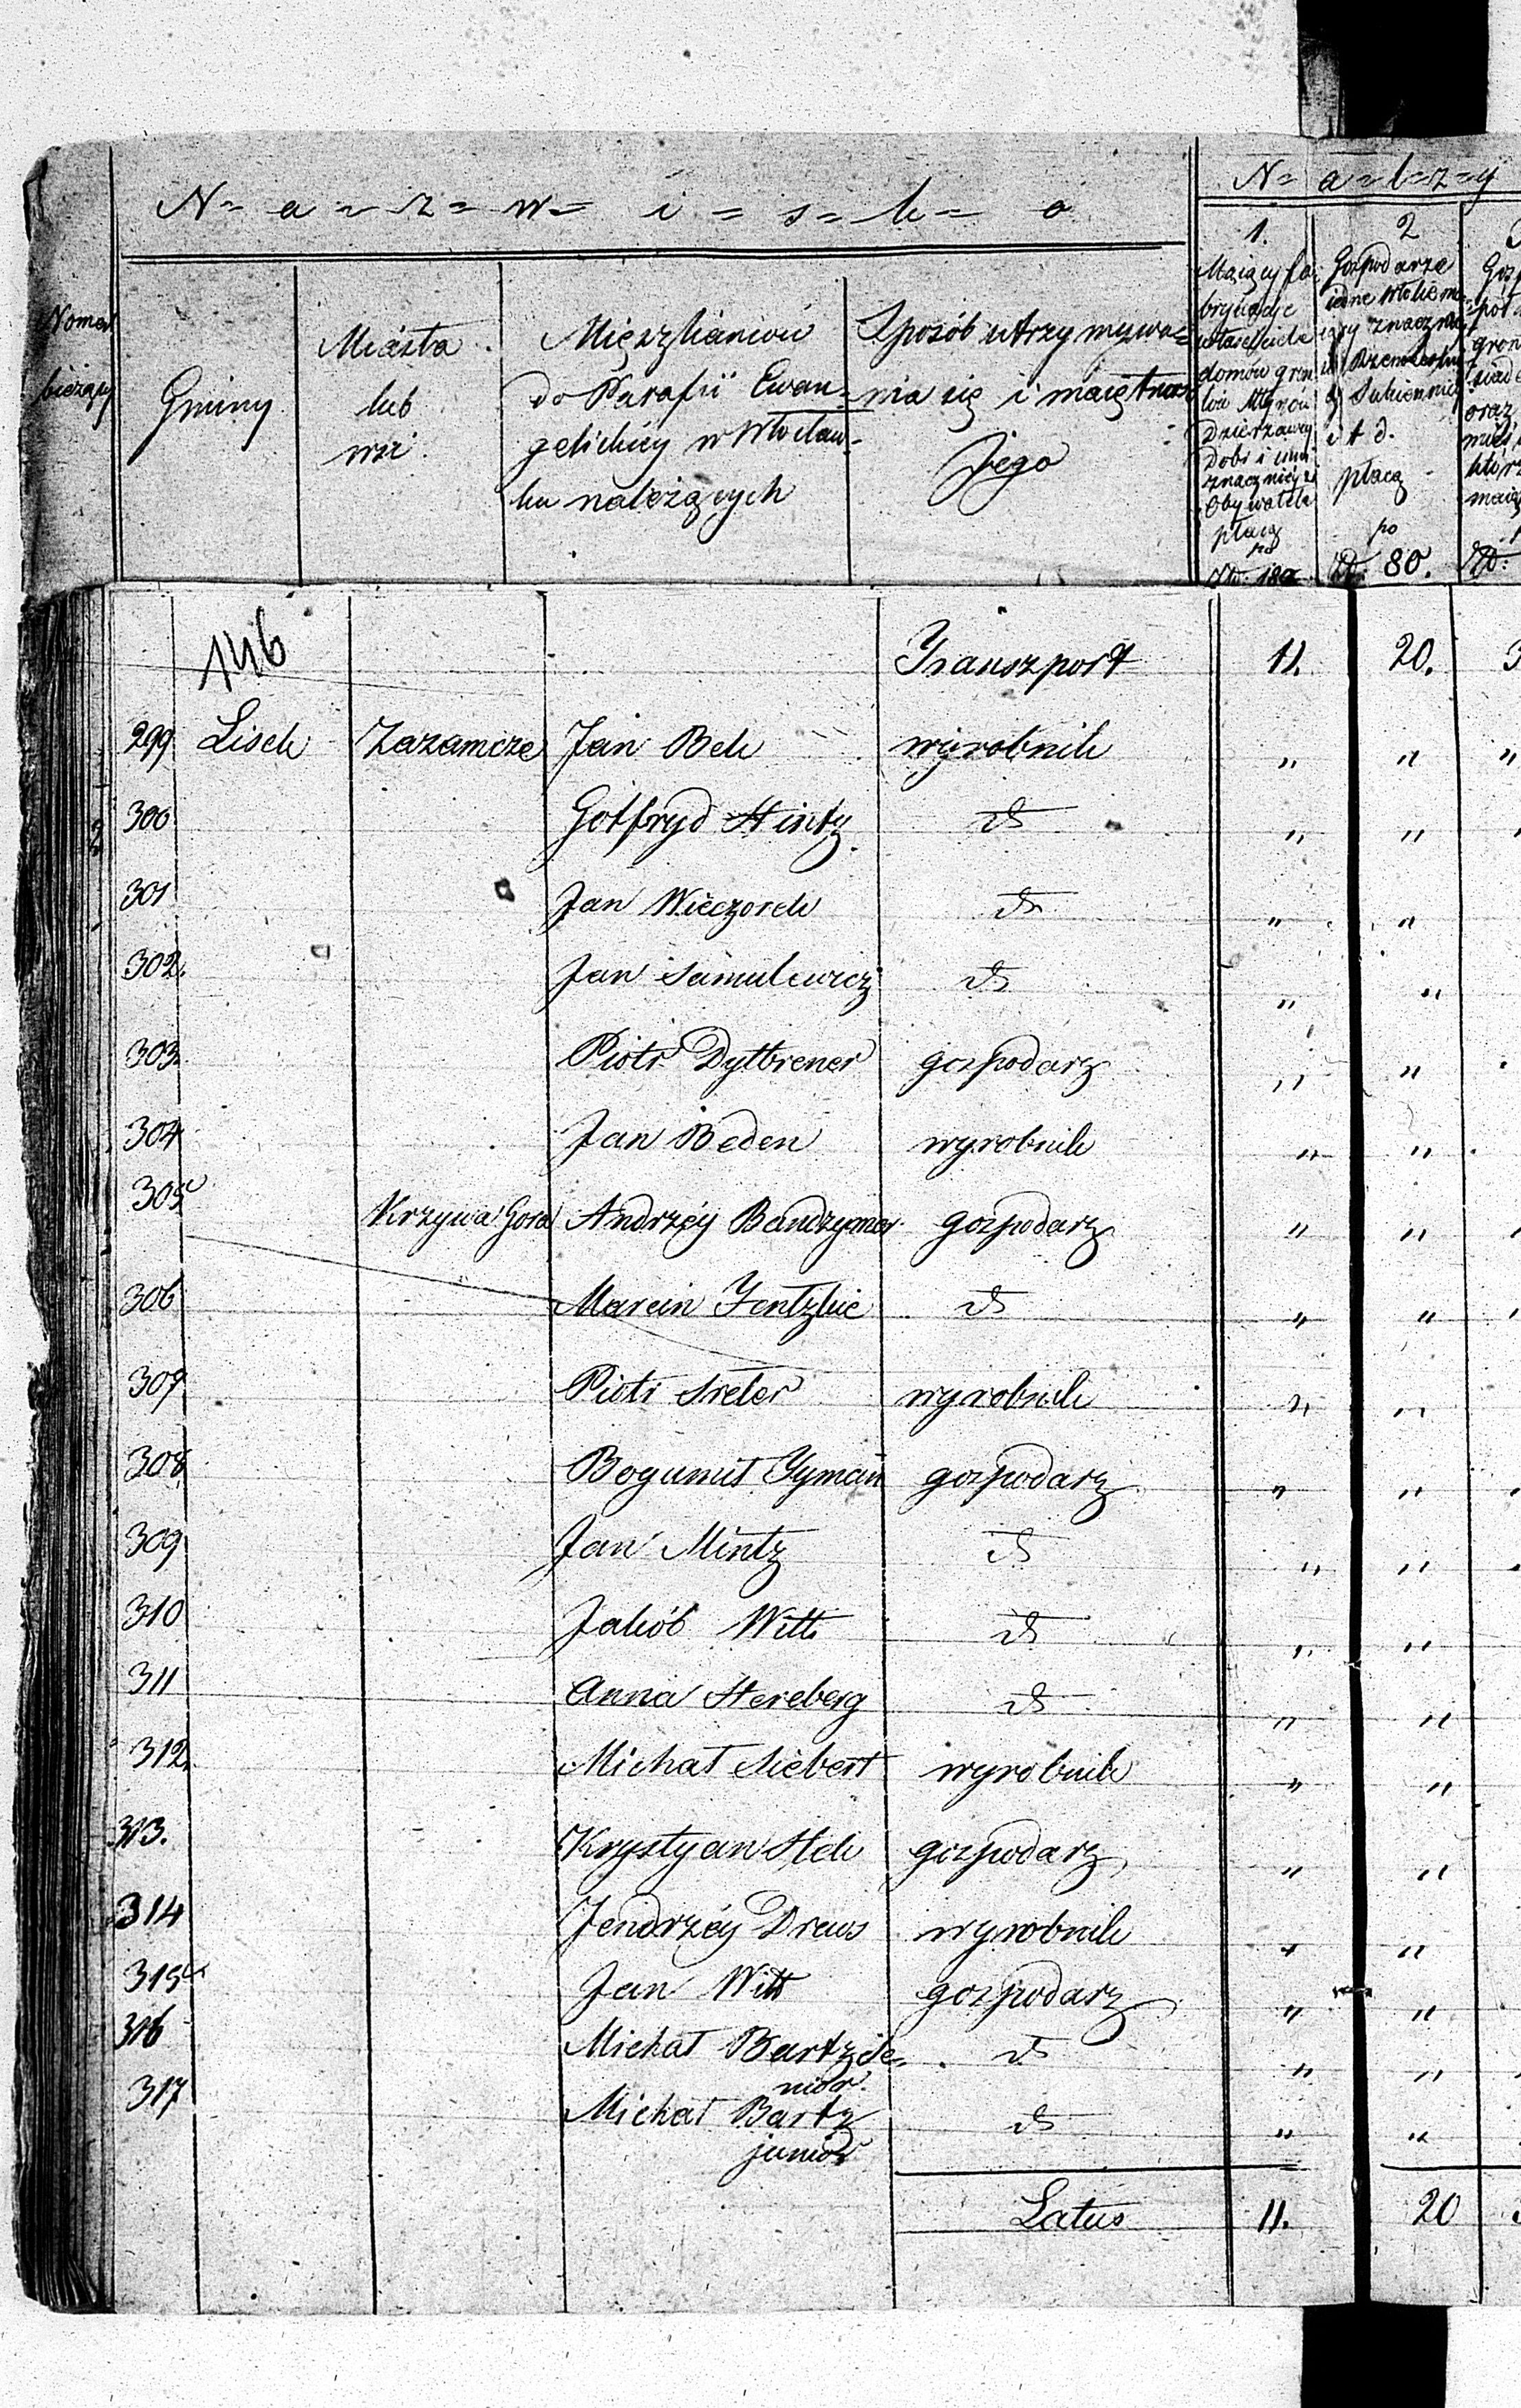 N=a=z=w=i=s=k=o
N=a=l=e=ż=y
Nomer
bieżący
Gminy
Miasta
lub
wsi
Mięszkańców
do Parafii Ewan=
gelickiey w Włocław=
ku należących
Sposób utrzymywa=
nia się i maiętność
Jego
1.
Maiący fa=
bryki
właściciele
domów
Dzierżawcy
Dóbr i inni
znacznieysi
Obywatele
płacą
po
Zł: 180
2
Gospodarze
płacą
po
Zł: 80.
146
Transport 11. 20. 3
299 Lisek Zazamcze Jan Bek wyrobnik " " "
300 Gotfryd Hintz d° " "
301 Jan Wieczorek d° " "
302. Jan Samulewicz d° " "
303. Piotr Dytbrener gospodarz " "
304 Jan Beden wyrobnik " "
305 Krzywa Gora Andrzéy Bandzymer gospodarz " "
306 Marcin Jentzkie d° " "
307 Piotr Sreler wyrobnik " "
308 Bogumił Tyman gospodarz " "
309 Jan Mintz d° " "
310 Jakób Witt d° " "
311 Anna Hereberg d° " "
312. Michał Siebert wyrobnik " "
313. Krystyan Hek gospodarz " "
314 Jendrzéy Drews wyrobnik " "
315 Jan Witt gospodarz " "
316 Michał Bartz Se= d° " "
nior.
317 Michał Bartz d° " "
junior
Latus 11. 20 3